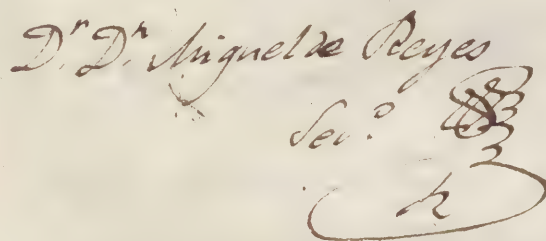 D.r D.n Miguel de Reyes